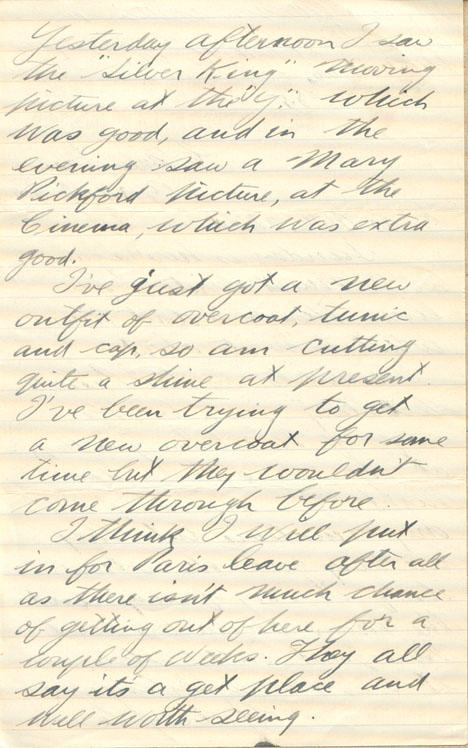 Yesterday afternoon I saw
the "Silver King" moving
picture at the "Y." which
was good, and in the
evening saw a Mary
Pickford picture, at the
Cinema, which was extra
good.
I've just got a new
outfit of overcoat, tunic
and cap, so am cutting
quite a shine at present.
I've been trying to get
a new overcoat for some
time but they wouldn't
come through before.
I think I will put
in for Paris leave after all
as there isn't much chance
of getting out of here for a
couple of weeks. They all
say its a get place and
well worth seeing.